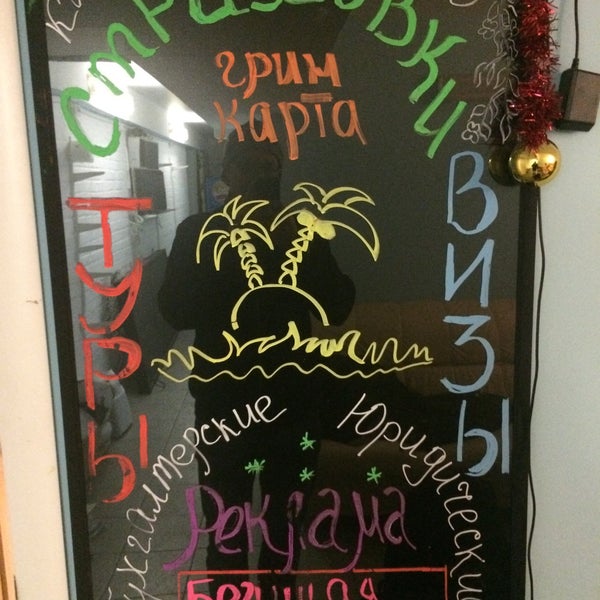 Страховки
грин
карта
Туры
Визы
Бухгалтерские
Юридические
Реклама
Бегущая